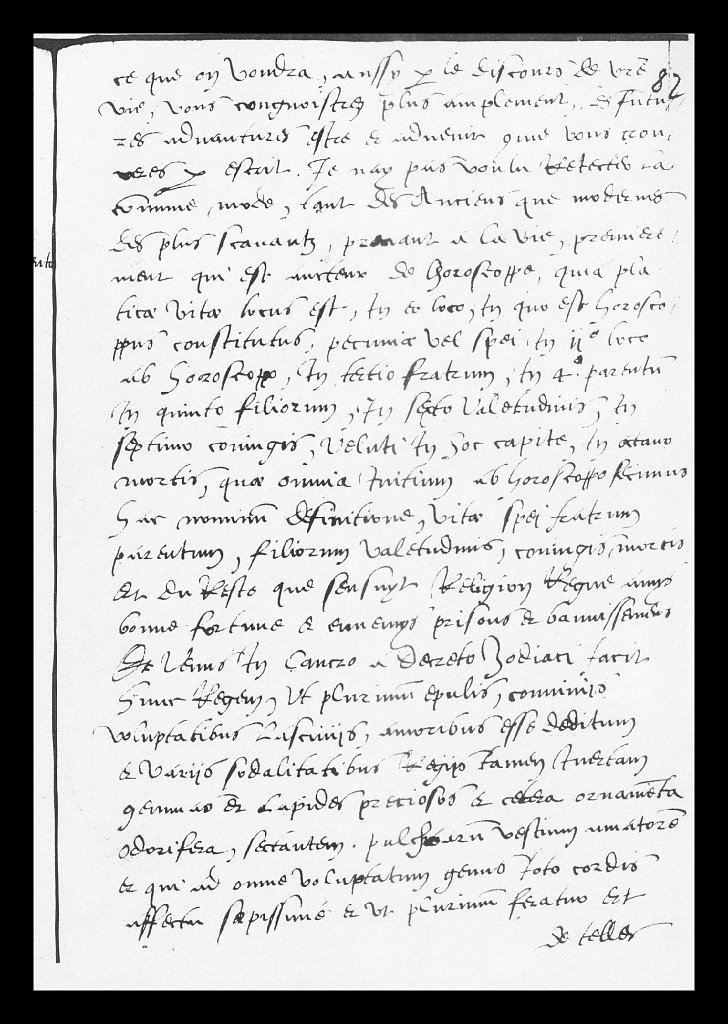 82
ce que on vondra, aussy p le discours de vre
vie, vous congnoistrez plus amplement, & futu-
res advantures estre et advenir que vous trou-
veres p escrit. Je nay pas voulu Relecter la
commune mode, tant des Anciens que modernes
des plus scavantz, prenant a la vie, premiere-
ment qui est aucteur de horoscoppe, quia pla
ticæ vitæ locus est, In eo loco, In quo est horosco-
ppus constitutus, pecuniæ vel spei In ii° loco
ab horoscopo, In tertio fratrum, In 4° parentũ
In quinto filiorum, In sexto valetudinis, In
septimo coniugis, veluti In hoc capite, In octavo
mortis, quæ omnia Initium ab horoscoppo fecimus
hac nominũ definitione, vitæ spei fratrum
parentum, filiorum valetudinis, coniugis, mortis
Et du Reste que sensuyt Religion Regne amys
bonne fortune et ennemys prisons et bannissemens
Et Venus In Cancro a decreto Zodiaci facit
hunc Regem, Ut plurimum epulis, conviviis
voluptatibus Lascivijs, amoribus esse deditum
et varijs sodalitatibus Regijs tamen Inertam
gemmas Et Lapides preciosos et cetera ornamẽta
odorifera, sectantem. pulchrarũ vestium amatorẽ
et qui ad omne voluptatum genus toto cordis
affectu sæpissimè et ut plurimũ feratur Et
de telles